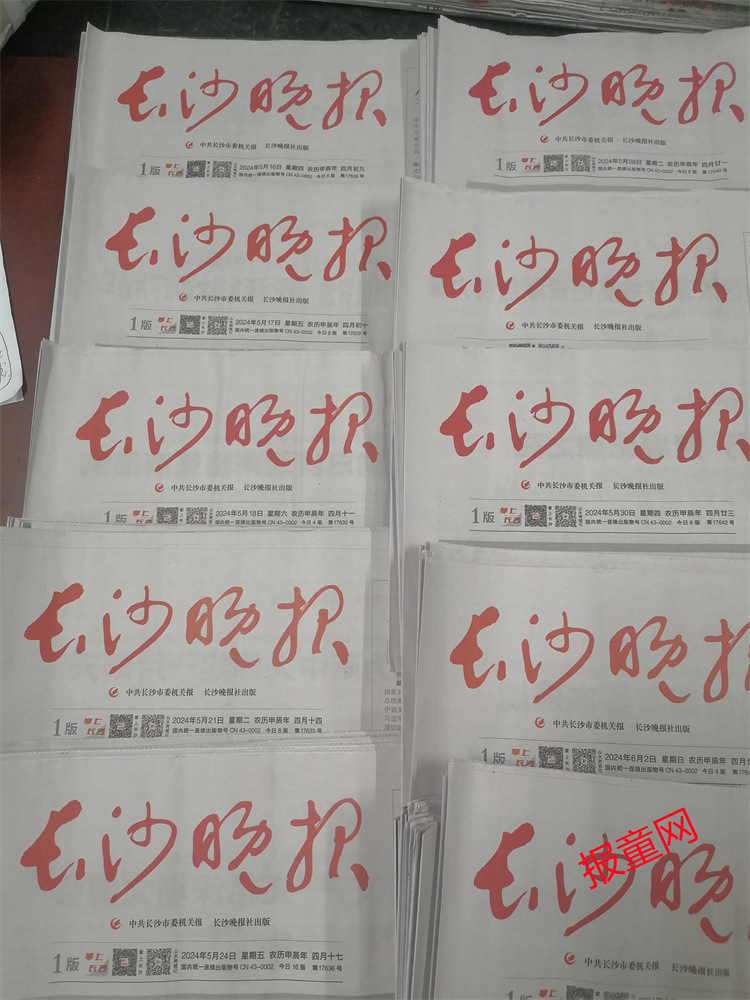 长沙晚报
中共长沙市委机关报 长沙晚报社出版
1版 掌上长沙 2024年5月16日 星期四 农历甲辰年 四月初九
国内统一连续出版物号 CN 43-0002 今日8版 第17628号
长沙晚报
中共长沙市委机关报 长沙晚报社出版
1版 掌上长沙 2024年5月17日 星期五 农历甲辰年 四月初十
国内统一连续出版物号 CN 43-0002 今日8版 第17629号
长沙晚报
中共长沙市委机关报 长沙晚报社出版
1版 掌上长沙 2024年5月18日 星期六 农历甲辰年 四月十一
国内统一连续出版物号 CN 43-0002 今日4版 第17630号
长沙晚报
中共长沙市委机关报 长沙晚报社出版
1版 掌上长沙 2024年5月21日 星期二 农历甲辰年 四月十四
国内统一连续出版物号 CN 43-0002 今日8版 第17633号
长沙晚报
中共长沙市委机关报 长沙晚报社出版
1版 掌上长沙 2024年5月24日 星期五 农历甲辰年 四月十七
国内统一连续出版物号 CN 43-0002 今日16版 第17636号
长沙晚报
中共长沙市委机关报 长沙晚报社出版
1版 掌上长沙 2024年5月28日 星期二 农历甲辰年 四月廿一
国内统一连续出版物号 CN 43-0002 今日8版 第17640号
长沙晚报
中共长沙市委机关报 长沙晚报社出版
长沙晚报
中共长沙市委机关报 长沙晚报社出版
1版 掌上长沙 2024年5月30日 星期四 农历甲辰年 四月廿三
国内统一连续出版物号 CN 43-0002 今日8版 第17642号
长沙晚报
中共长沙市委机关报 长沙晚报社出版
1版 掌上长沙 2024年6月2日 星期日 农历甲辰年 四月廿
国内统一连续出版物号 CN 43-0002 今日4版
长沙晚
中共长沙市委机关报 长沙晚报社出版
1版
报童网